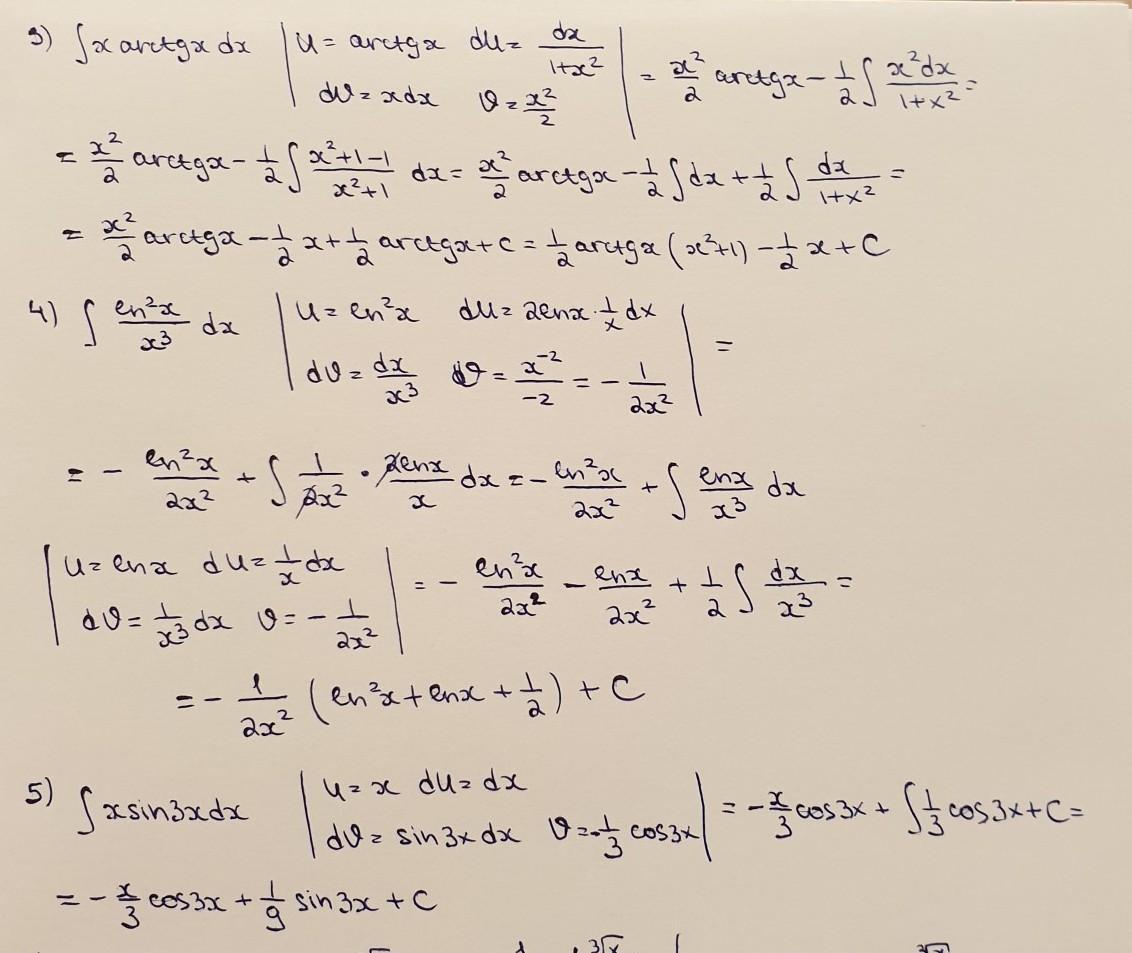 3) ∫x arctgx dx | u = arctgx du = dx/(1+x²) dv = xdx v = x²/2 | = x²/2 arctgx - 1/2 ∫ x²dx/(1+x²) =
= x²/2 arctgx - 1/2 ∫ (x²+1-1)/(x²+1) dx = x²/2 arctgx - 1/2 ∫dx + 1/2 ∫ dx/(1+x²) =
= x²/2 arctgx - 1/2 x + 1/2 arctgx + C = 1/2 arctgx (x²+1) - 1/2 x + C
4) ∫ ln²x/x³ dx | u = ln²x du = 2lnx · 1/x dx dv = dx/x³ v = x⁻²/-2 = - 1/2x² | =
= - ln²x/2x² + ∫ 1/2x² · 2lnx/x dx = - ln²x/2x² + ∫ lnx/x³ dx
| u = lnx du = 1/x dx dv = 1/x³ dx v = - 1/2x² | = - ln²x/2x² - lnx/2x² + 1/2 ∫ dx/x³ =
= - 1/2x² (ln²x + lnx + 1/2) + C
5) ∫xsin3xdx | u = x du = dx dv = sin3x dx v = - 1/3 cos3x | = - x/3 cos3x + ∫ 1/3 cos3x + C =
= - x/3 cos3x + 1/9 sin3x + C